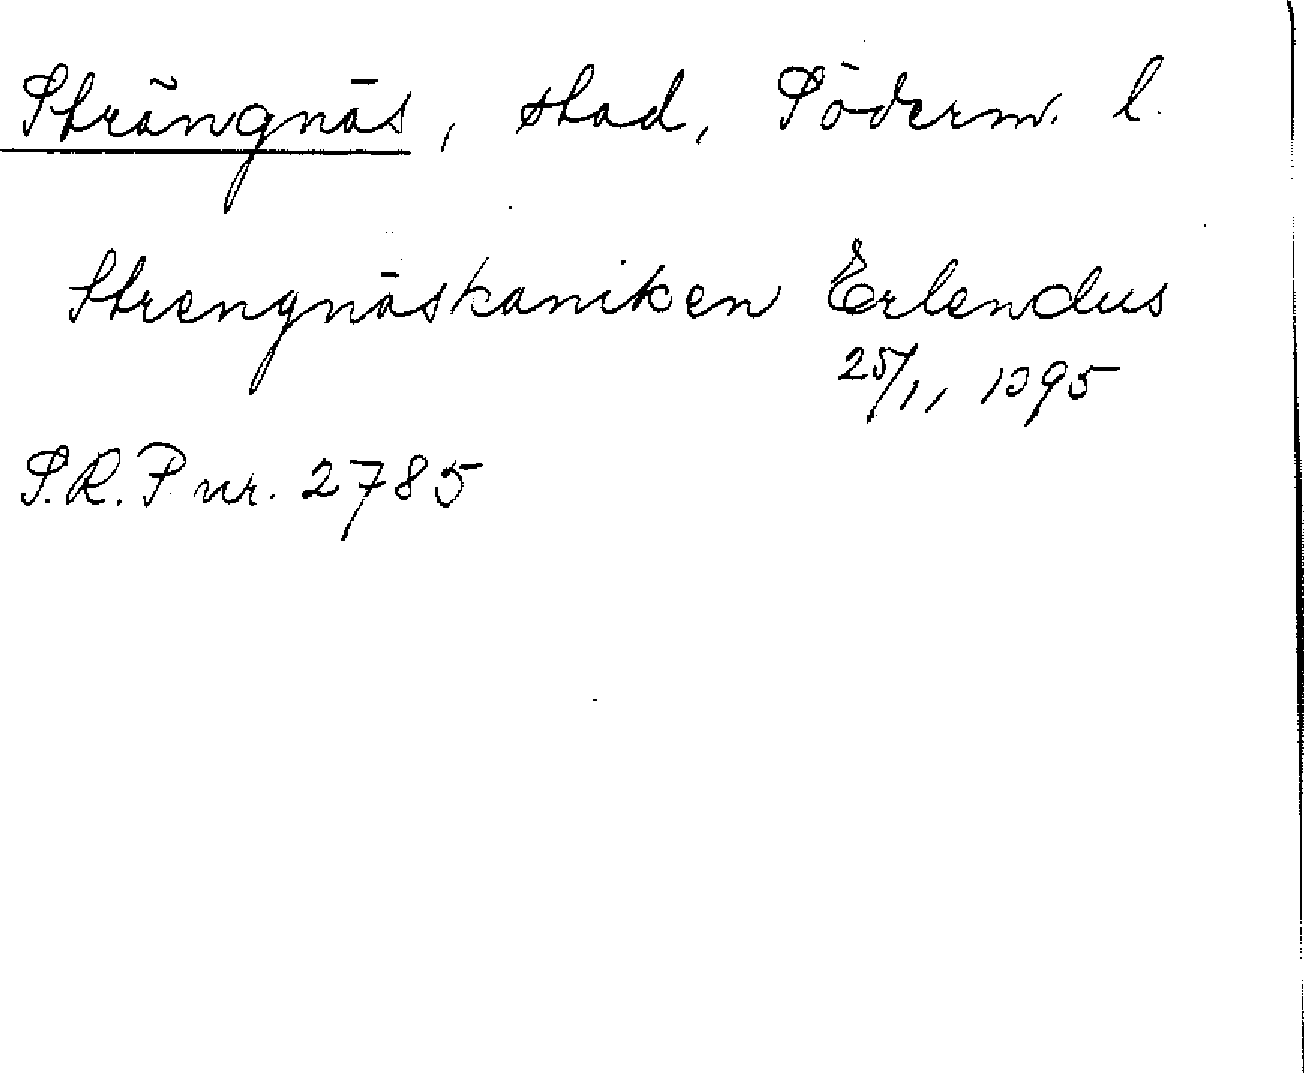 Strängnäs, stad, Söderm. l.
Strengnäskaniken Erlendus
25/1, 1395
S.R.P nr. 2785